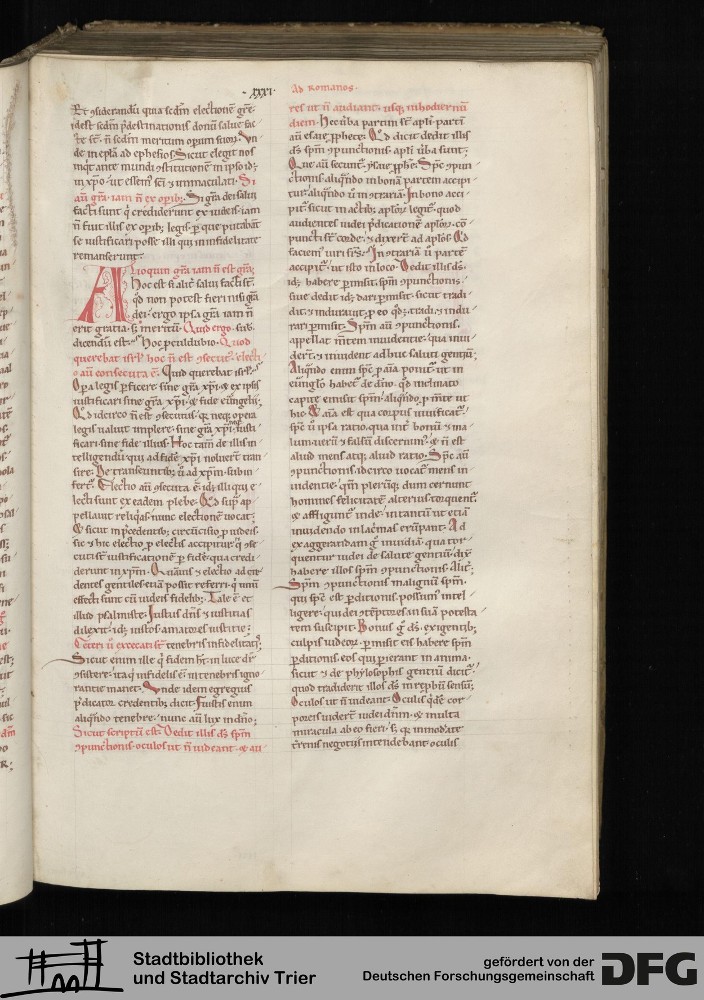 · xxxi · Ad Romanos ·
Et ɔsiderandū quia scdm̄ electionē grē·
idest scdm̄ p̄destinationis donū salue fac
te st̄· n̄ scdm̄ meritum opum suor. Vn
de in epl̄a ad ephesios. Sicut elegit nos
in xp̄o· ut essem̄ sc̄i & immaculati· Si
aū gr̄a· iam n̄ ex opib;· Si gr̄a dei salui
facti sunt q̄ crediderunt ex iudeis· iam
n̄ fuit illis ex opib; legis· p que putabāt
se iustificari posse illi qui in infidelitate
remanserunt·
Alioquin gr̄a iam n̄ est gr̄a;
Hoc est si alit̄ salui fact̄ st̄·
qd̄ non potest fieri nisi gr̄a
dei· ergo ipsa gr̄a iam n̄
erit gratia· s; meritū· Quid ergo· sub·
dicendū est· Hoc pculdubio· Quod
querebat isrl̄· hoc n̄ est ɔsecut̄· electi
o aū consecuta ē· Quid querebat isrl̄·
Opa legis pficere sine gr̄a xp̄i· & ex ipsis
iustificari sine gr̄a xp̄i· & fide euuangelii·
Qd̄ idcirco n̄ est ɔsecutus· q̄ neq; opera
legis ualuit implere· sine gr̄a xp̄i· nec iusti
ficari sine fide illius· Hoc tam̄ de illis in
telligendū· qui ad fidē xp̄i noluert̄ tran
sire· De transeuntib; ū ad xp̄m· subin
fert̄· Electio aū ɔsecuta ē· id; illi qui e
lecti sunt ex eadem plebe· Qd̄ sup̄ ap
pellauit reliqas· nunc electionē uocat;
& sicut in p̄cedentib; circūcisio p iudeis·
sic & hic electio p electis accipitur· q̄ ɔse
cuti st̄ iustificationē p fidē· qua credi
derunt in xp̄m· Quāuis & electio ad cre
dentes gentiles etiā possit referri· q̄ unū
effecti sunt cū iudeis fidelib;· Tale ē et
illud psalmiste· Iustus dn̄s & iusticias
dilexit· id; iustos amatores iusticie;
Ceteri ū excecati st̄ tenebris infidelitatis;
Sicut enim ille q̄ fidem ht̄· in luce dr̄
ɔsistere· ita q̄ infidelis ē· in tenebris igno
rantie manet· Vnde idem egregius
p̄dicator credentib; dicit· Fuistis enim
aliqn̄do tenebre· nunc aū lux in dn̄o;
Sicut scriptū est· Dedit illis ds̄ spm̄
ɔpunctionis· oculos ut n̄ uideant· & au
res ut n̄ audiant· usq; in hodiernū
diem· Hec ūba partim st̄ apl̄i· partī
aū esaie pphete· Qd̄ dicit dedit illis
ds̄ spm̄ ɔpunctionis· apl̄i ūba sunt;
Que aū secunt̄· ysaie pphe· Spc̄ ɔpun
ctionis aliqn̄do in bonā partem accipi
tur· aliqn̄do ū in ɔtrariā· In bono acci
pit̄· sicut in actib; aplor̄ legit̄· quod
audientes iudei p̄dicationē aplor̄· cō
puncti st̄ corde· & dixert̄ ad aplos· Qd̄
faciem̄ uiri frs̄· In ɔtrariā ū partē
accipit̄· ut isto in loco· Dedit illis ds̄·
id; habere pmisit· spm̄ ɔpunctionis·
siue dedit id; dari pmisit· sicut tradi
dit· & indurauit· p eo qd̄ tradi· & indu
rari pmisit· Spm̄ aū ɔpunctionis·
appellat m̄tem inuidentie· qua inui
dert̄· & inuident adhuc saluti gentiū;
Aliqn̄do enim spc̄ p aīa ponit̄· ut in
euuglo habet̄ de dn̄o· qd̄ inclinato
capite emisit spm̄· aliqn̄do p m̄te ut
hic· & aīa est qua corpus uiuificat̄·
spc̄ ū ipsa ratio· qua int̄ bonū & ma
lum· uerū & falsū discernim̄· & n̄ est
aliud mens atq; aliud ratio· Spc̄ aū
ɔpunctionis· idcirco uocat̄ mens in
uidentie· qm̄ plerūq; dum cernunt
homines felicitatē alterius torquent̄
& affligunt̄ inde· in tantū ut etiā
inuidendo in lacrimas erūpant· Ad
exaggerandam g̊ inuidiā· qua tor
quentur iudei de salute gentiū· dix̄
habere illos spm̄ ɔpunctionis· Alit̄·
Spm̄ ɔpunctionis malignū spm̄·
qui spc̄ est pditionis· possum̄ intel
ligere· qui dei ɔtēptores in suā potesta
tem suscipit· Bonus g̊ ds̄· exigentib;
culpis iudeor̄· pmisit eis habere spm̄
pditionis· eos qui pierant in anima·
sicut & de phylosophis gentiū dicit̄·
quod tradiderit illos ds̄ in repbū sensū;
Oculos ut n̄ uideant· Oculis qd̄ē cor
poreis uidert̄ iudei dn̄m· & multa
miracula ab eo fieri· s; q̄ inmoderate
tr̄renis negotiis intendebant· oculis
Stadtbibliothek
und Stadtarchiv Trier
gefördert von der
Deutschen Forschungsgemeinschaft
DFG